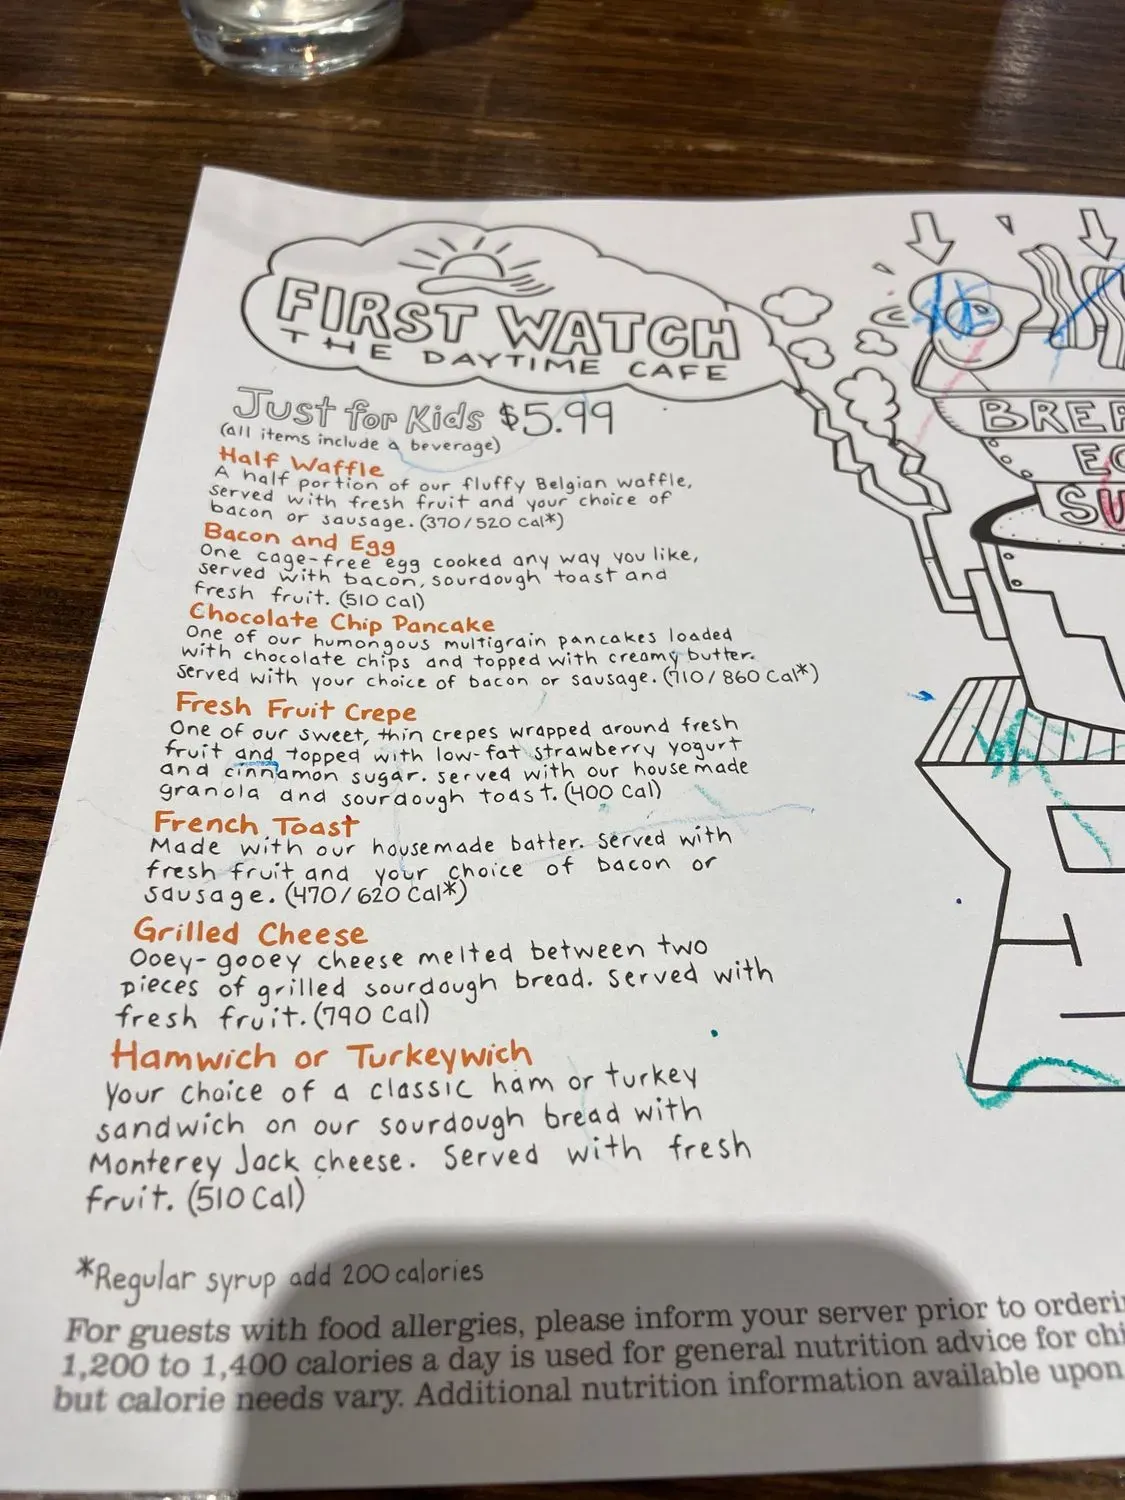 FIRST WATCH
THE DAYTIME CAFE
Just for Kids $5.99
(all items include a beverage)
Half Waffle
A half portion of our fluffy Belgian waffle,
served with fresh fruit and your choice of
bacon or sausage. (370/520 Cal*)
Bacon and Egg
One cage-free egg cooked any way you like,
served with bacon, sourdough toast and
fresh fruit. (510 Cal)
Chocolate Chip Pancake
One of our humongous multigrain pancakes loaded
with chocolate chips and topped with creamy butter.
Served with your choice of bacon or sausage. (710/860 Cal*)
Fresh Fruit Crepe
One of our sweet, thin crepes wrapped around fresh
fruit and topped with low-fat strawberry yogurt
and cinnamon sugar. Served with our housemade
granola and sourdough toast. (400 Cal)
French Toast
Made with our housemade batter. Served with
fresh fruit and your choice of bacon or
sausage. (470/620 Cal*)
Grilled Cheese
Ooey-gooey cheese melted between two
pieces of grilled sourdough bread. Served with
fresh fruit. (790 Cal)
Hamwich or Turkeywich
Your choice of a classic ham or turkey
sandwich on our sourdough bread with
Monterey Jack cheese. Served with fresh
fruit. (510 Cal)
*Regular syrup add 200 calories
For guests with food allergies, please inform your server prior to
1,200 to 1,400 calories a day is used for general nutrition advice for
but calorie needs vary. Additional nutrition information available upon